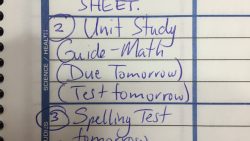 SHEET.
② Unit Study
Guide - Math
(Due Tomorrow)
(Test tomorrow)
③ Spelling Test
tomorrow
SCIENCE / HEALTH